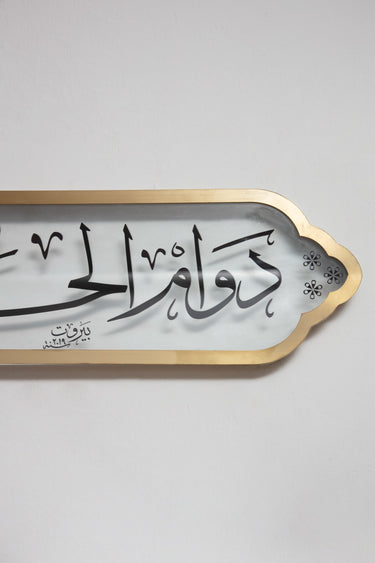 دَوَامُ الحَا
بَيْرُوت
سنة ٢٠١٩